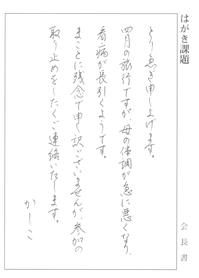 はがき課題
会長書
とり急ぎ申し上げます。
四月の旅行ですが、母の体調が急に悪くなり、
看病が長引くようです。
まことに残念で申し訳ございませんが、参加の
取り止めをしたくご連絡いたします。
かしこ